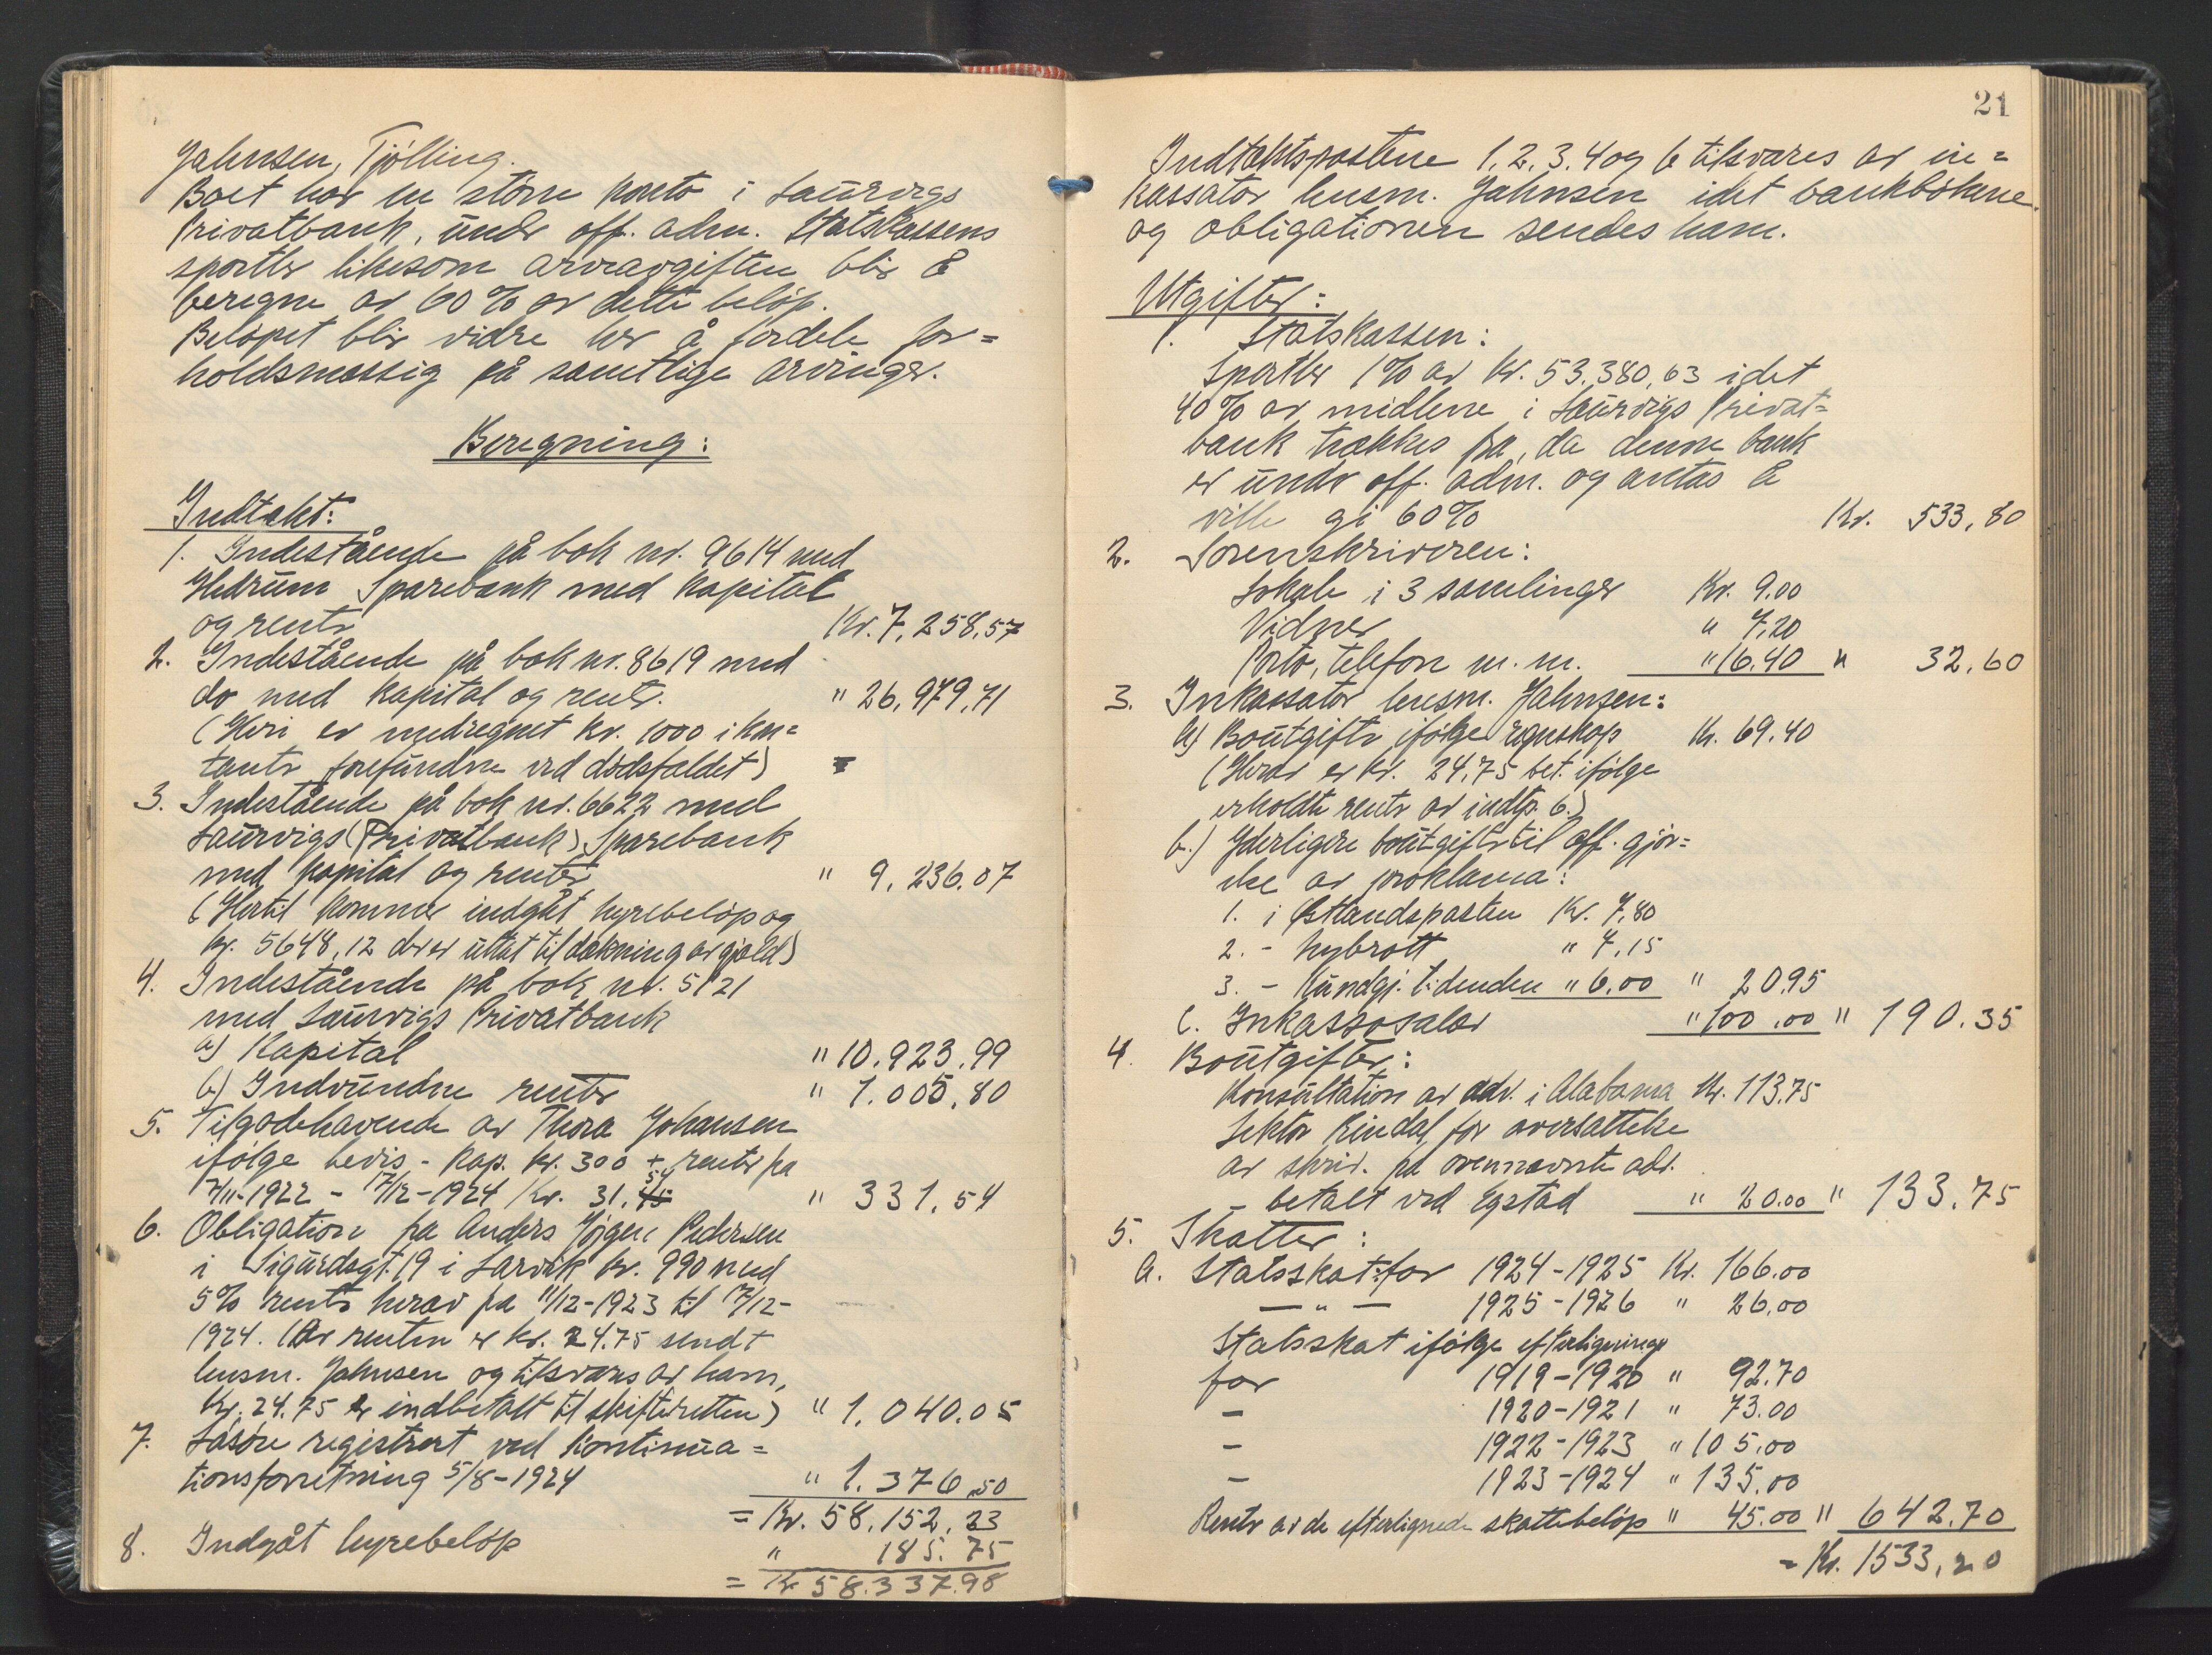 Jahnsen, Tjölling.
Boet har en större konto i Laurvigs
Privatbank, under off. adm. Statskassens
sportler likesom arveavgiften blir å
beregne av 60% av dette belöp.
Belöpet blir vidre her å fordele for=
holdsmessig på samtlige arvinger.
Beregning:
Indtekt:
1. Indestående på bok nr. 9614 med
Hedrum Sparebank med kapital
og renter Kr. 7,258,57
2. Indestående på bok nr. 8619 med
do med kapital og renter. " 26,979,71
(Heri er medregnet kr. 1000 i kon=
tanter forefundne ved dödsfaldet)
3. Indestående på bok nr. 6622 med
Laurvigs (Privatbank) Sparebank
med kapital og renter " 9,236.07
(Hertil kommer indgåt hyrebelöp og
kr. 5648,12 der er uttat til dækning av gjeld)
4. Indestående på bok nr. 5121
med Laurvigs Privatbank
a) Kapital " 10.923.99
b) Indvundne renter " 1.005,80
5. Tilgodehavende av Thora Johansen
ifölge bevis - kap. kr. 300 + renter fra
7/11-1922 - 17/12-1924 Kr. 31,54 " 331,54
6. Obligation fra Anders Jörgen Pedersen
i Sigurdsgt. 19 i Larvik kr. 990 med
5% renter herav fra 11/12-1923 til 17/12-
1924. (Av renten er kr. 24.75 sendt
lensm. Jahnsen og tilsvares av ham,
Kr. 24.75 er indbetalt til skifteretten) " 1.040.05
7. Lösöre registrert ved kontinua=
tionsforretning 5/8-1924 " 1.376,50
= Kr. 58.152,23
8. Indgåt hyrebelöp " 185.75
= Kr 58.337.98
21
Indtektspostene 1.2.3.4 og 6 tilsvares av in=
kassator lensm. Jahnsen idet bankbökene
og obligationen sendes ham.
Utgifter:
1. Statskassen:
Sportler 1% av kr. 53.380,63 idet
40% av midlene i Laurvigs Privat=
bank trækkes fra, da denne bank
er under off. adm. og antas å
ville gi 60% Kr. 533,80
2. Sorenskriveren:
Lokale i 3 samlinger Kr. 9.00
Vidner " 7,20
Porto, telefon m.m. " 16.40 " 32,60
3. Inkassator lensm. Jahnsen:
a) Boutgifter ifölge regnskap Kr. 69.40
(Herav er kr. 24,75 bet. ifölge
erholdte renter av indtp. 6.)
b.) Yderligere boutgifter til off. gjör=
else av proklama:
1. i Östlandsposten Kr. 7,80
2. - Nybrott " 7,15
3. - Kundgj. tidenden " 6.00 " 20.95
c. Inkassosalær " 100,00 " 190.35
4. Boutgifter:
Konsultation av adv. i Alabama Kr. 113.75
Lektor Rindal for oversættelse
av skriv. fra ovennævnte adv.
betalt ved Egstad " 20.00 " 133.75
5. Skatter:
a. Statsskat for 1924-1925 Kr. 166.00
— " — 1925-1926 " 26.00
Statsskat ifölge efterligninger
for 1919-1920 " 92.70
— 1920-1921 " 73.00
— 1922-1923 " 105.00
— 1923-1924 " 135.00
Renter av de efterlignede skattebelöp " 45.00 " 642.70
= Kr. 1533,20